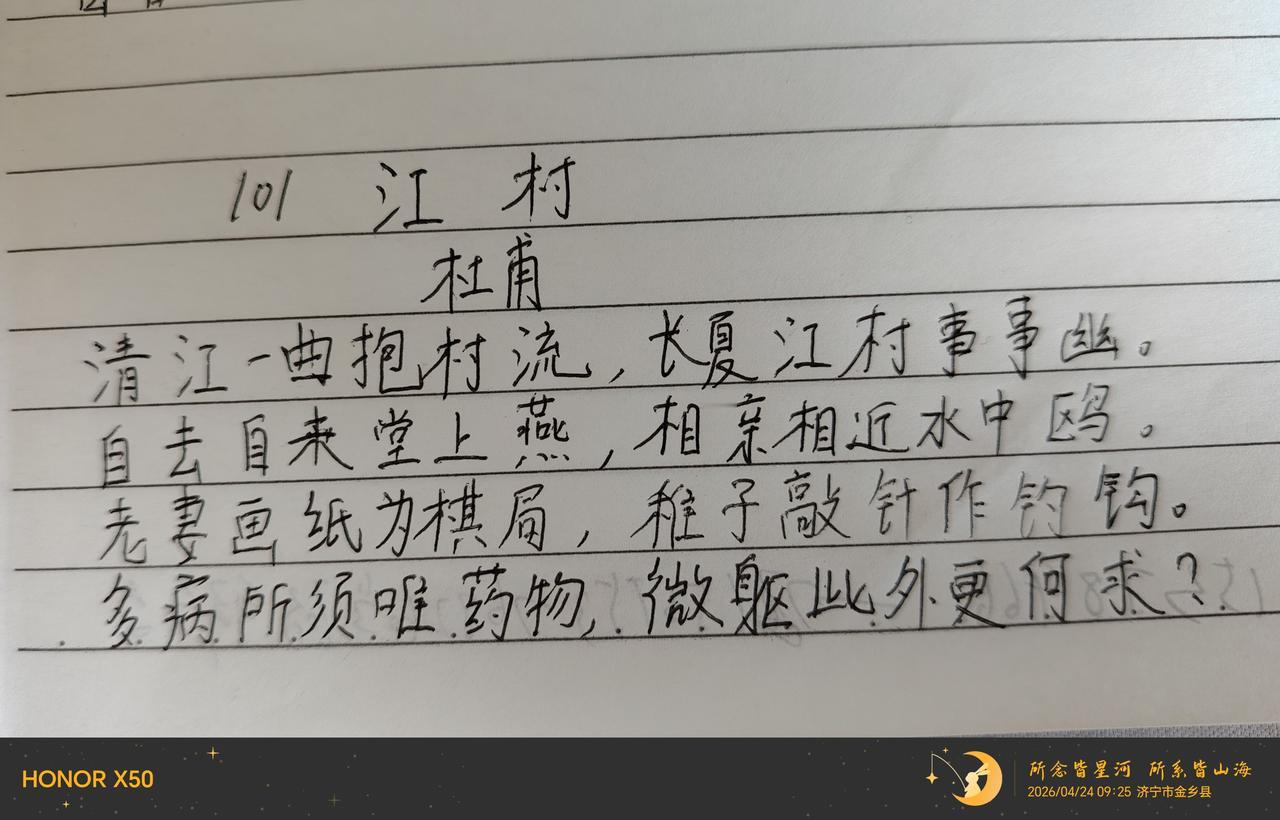 101 江村
杜甫
清江一曲抱村流,长夏江村事事幽。
自去自来堂上燕,相亲相近水中鸥。
老妻画纸为棋局,稚子敲针作钓钩。
多病所须唯药物,微躯此外更何求?
HONOR X50
所念皆星河 所系皆山海
2026/04/24 09:25 济宁市金乡县